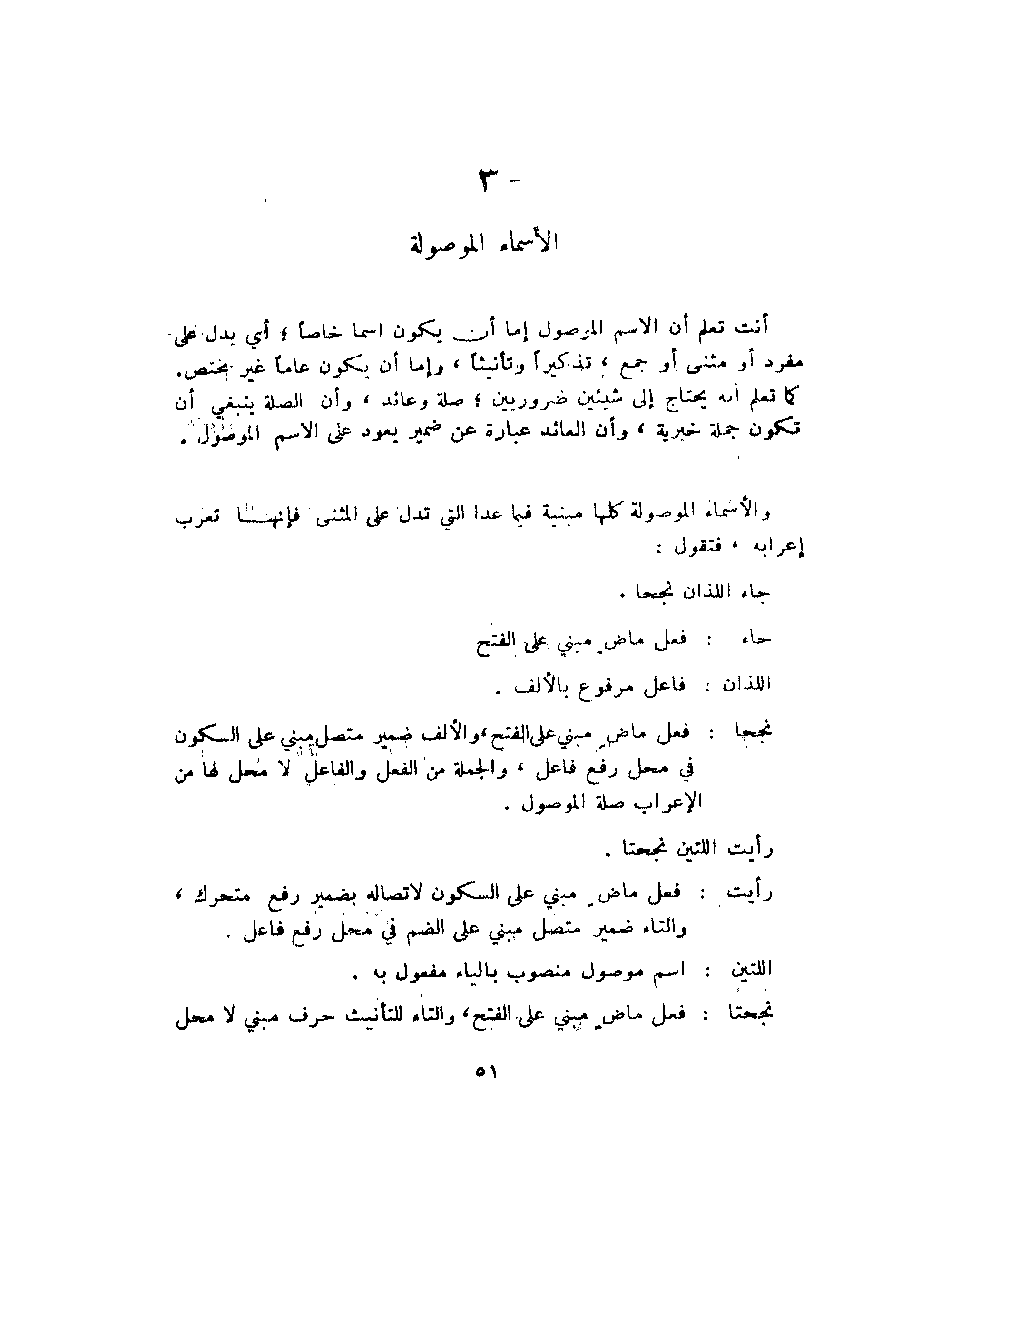 - ٣
الأسماء الموصولة
أنت تعلم أن الاسم الموصول إما أن يكون اسما خاصاً ؛ أي يدل على
مفرد أو مثنى أو جمع ، تذكيراً وتأنيثاً ، وإما أن يكون عاماً غير مختص.
كما تعلم أنه يحتاج إلى شيئين ضروريين ؛ صلة وعائد ، وأن الصلة ينبغي أن
تكون جملة خبرية ، وأن العائد عبارة عن ضمير يعود على الاسم الموصول .
والأسماء الموصولة كلها مبنية فيما عدا التي تدل على المثنى فإنهــا تعرب
إعرابه ، فتقول :
جاء اللذان نجحا .
جاء : فعل ماضٍ مبني على الفتح
اللذان : فاعل مرفوع بالألف .
نجحا : فعل ماضٍ مبني على الفتح، والألف ضمير متصل مبني على السكون
في محل رفع فاعل ، والجملة من الفعل والفاعل لا محل لها من
الإعراب صلة الموصول .
رأيت اللتين نجحتا .
رأيت : فعل ماضٍ مبني على السكون لاتصاله بضمير رفع متحرك ،
والتاء ضمير متصل مبني على الضم في محل رفع فاعل .
اللتين : اسم موصول منصوب بالياء مفعول به .
نجحتا : فعل ماضٍ مبني على الفتح، والتاء للتأنيث حرف مبني لا محل
٥١